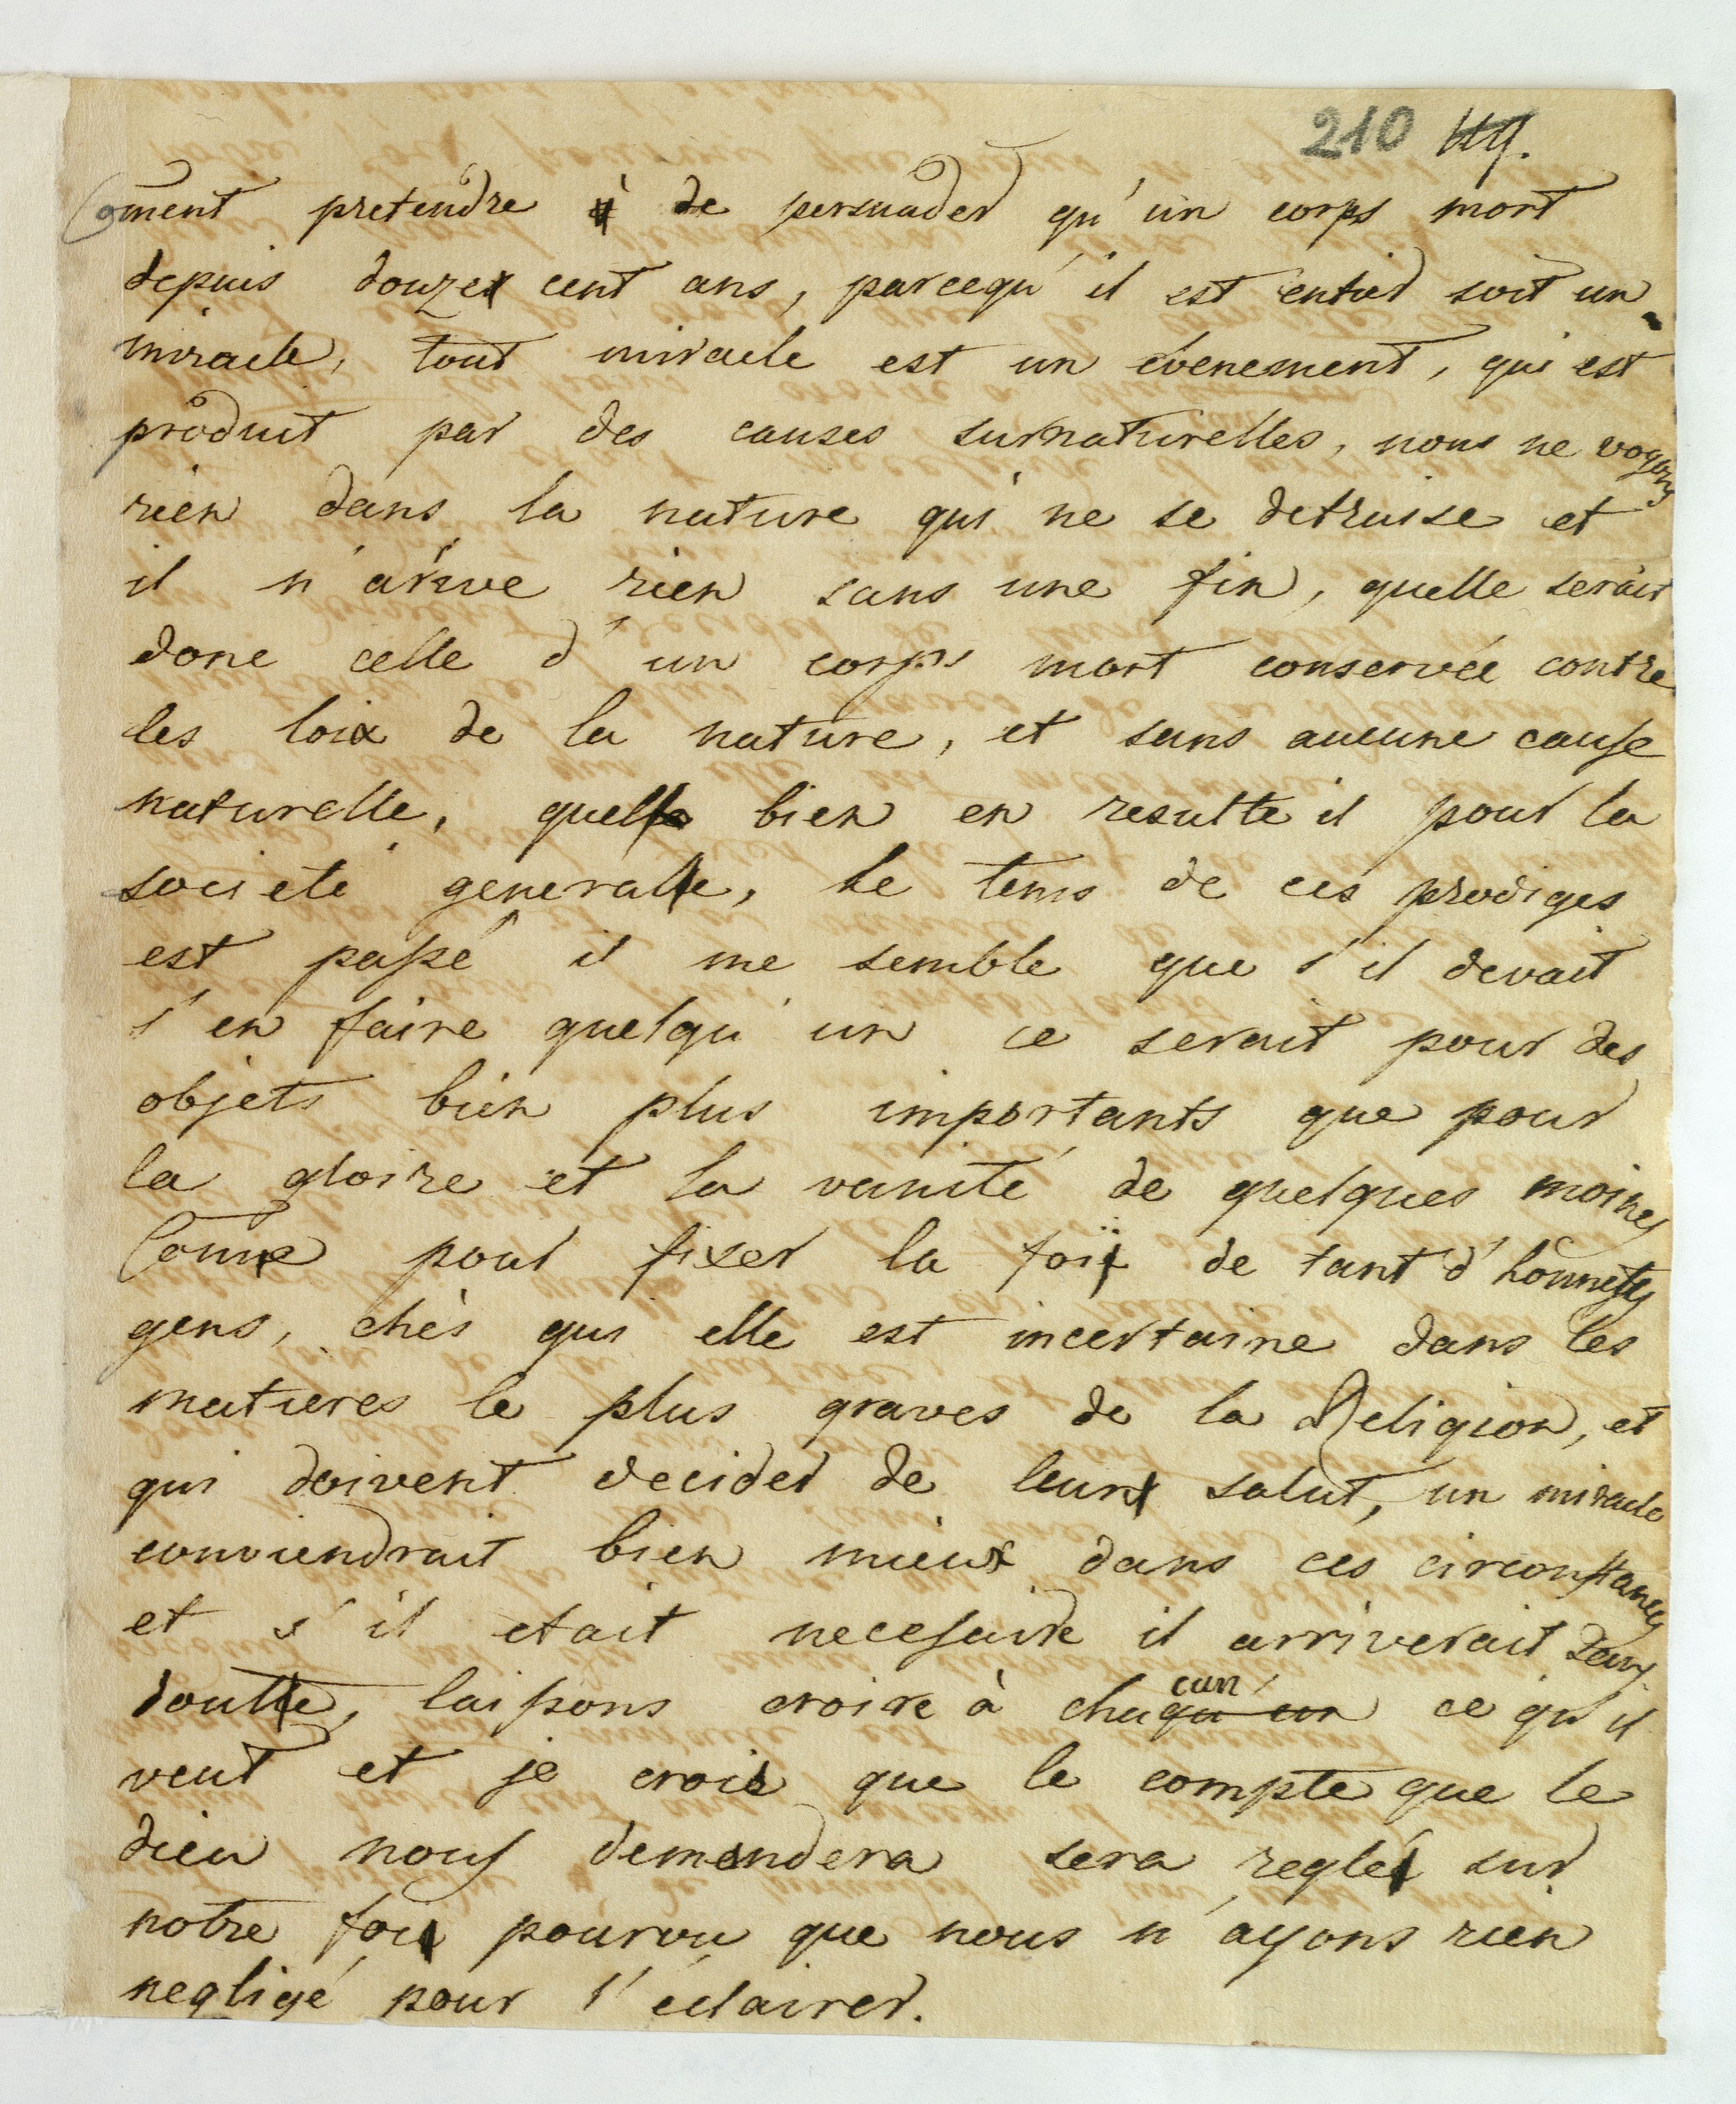 210
Coment pretendre de persuader qu'un corps mort
depuis douze cent ans, parcequ'il est entier soit un
miracle, tout miracle est un évenement, qui est
produit par des causes surnaturelles, nous ne voyons
rien dans la nature qui ne se detruise et
il n'arive rien sans une fin, quelle serait
donc celle d'un corps mort conservée contre
les loix de la nature, et sans aucune cause
naturelle, quel bien en resulte il pour la
societé generale, le tems de ces prodiges
est passé il me semble que s'il devait
s'en faire quelqu'un ce serait pour des
objets bien plus importants que pour
la gloire et la vanité de quelques moines
Come pour fixer la foi de tant d'honnetes
gens, chès qui elle est incertaine dans les
matieres le plus graves de la Religion, et
qui doivent decider de leur salut, un miracle
conviendrait bien mieux dans ces circonstances
et s'il etait necessaire il arriverait sans
doute, laissons croire à chaqu'un cun ce qu'il
veut et je crois que le compte que le
dieu nous demandera sera reglé sur
notre foi pourvu que nous n'ayons rien
negligé pour l'éclairer.